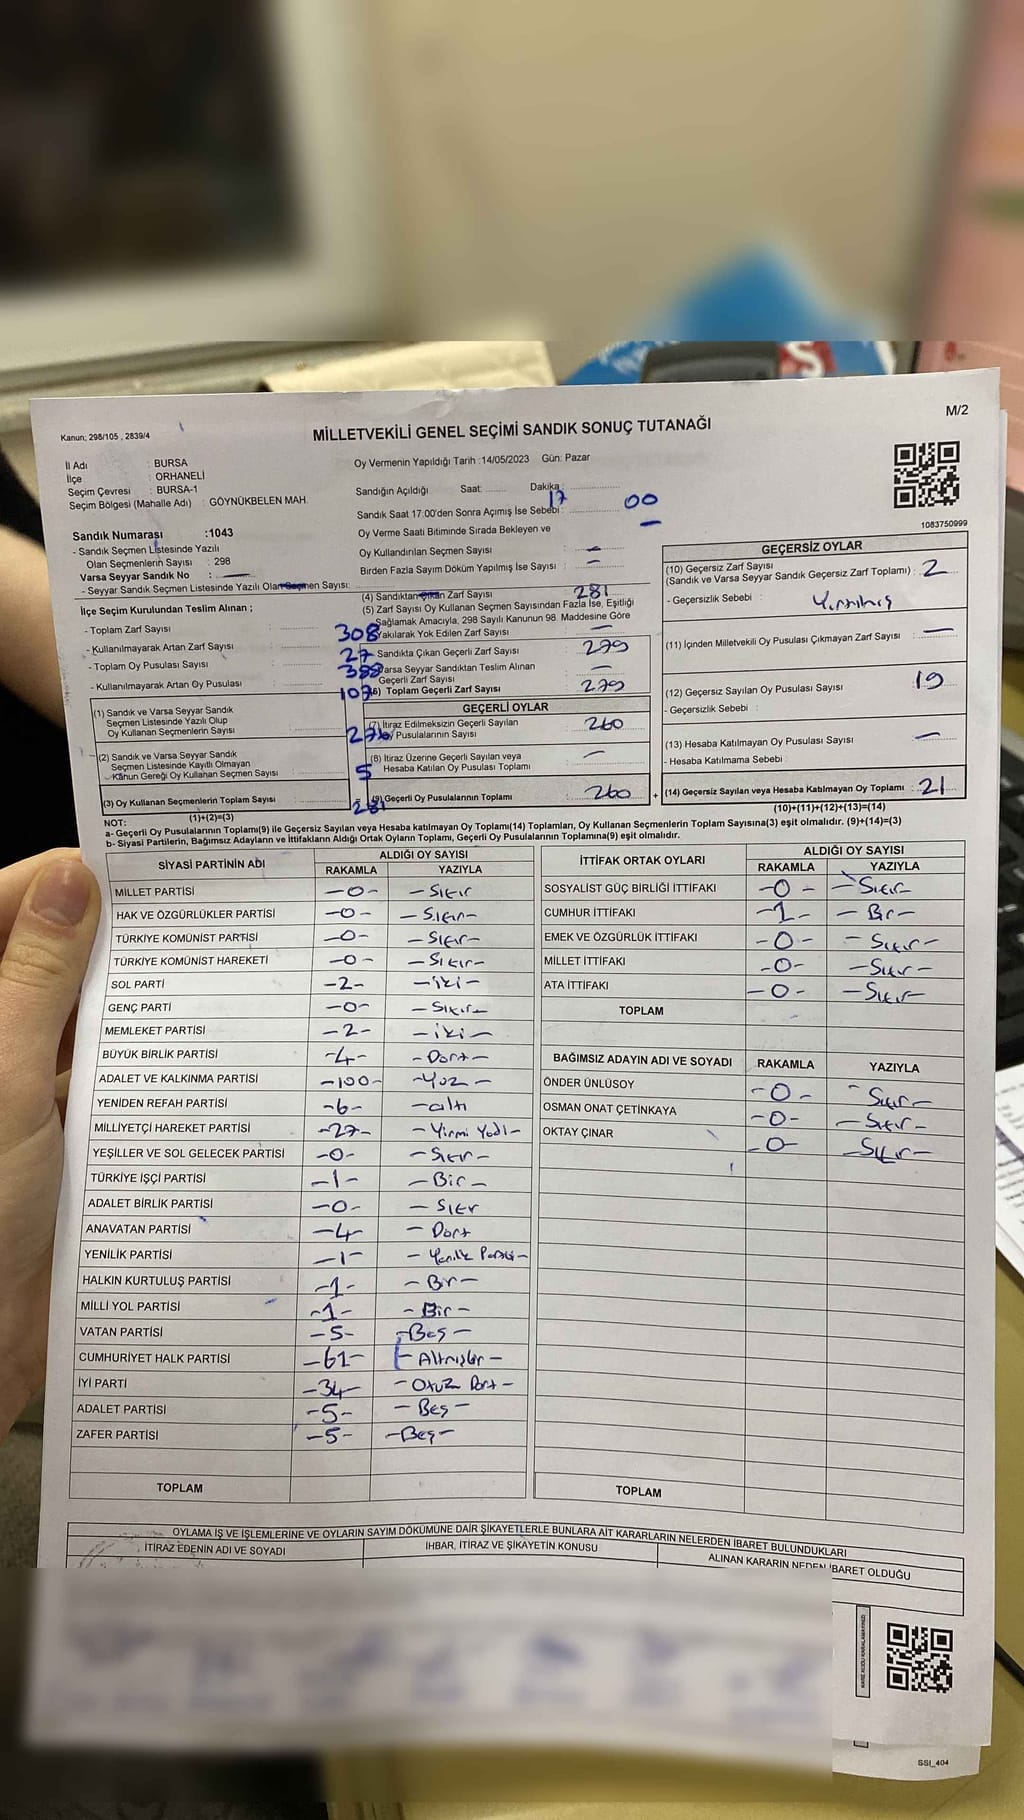 M/2
Kanun; 298/105 , 2839/4
MİLLETVEKİLİ GENEL SEÇİMİ SANDIK SONUÇ TUTANAĞI
İl Adı : BURSA
İlçe : ORHANELİ
Seçim Çevresi : BURSA-1
Seçim Bölgesi (Mahalle Adı) : GÖYNÜKBELEN MAH.
Oy Vermenin Yapıldığı Tarih :14/05/2023 Gün: Pazar
Sandığın Açıldığı Saat: 17 Dakika: 00
Sandık Saat 17.00'den Sonra Açımış İse Sebebi : —
Oy Verme Saati Bitiminde Sırada Bekleyen ve
Oy Kullandırılan Seçmen Sayısı : —
Birden Fazla Sayım Döküm Yapılmış İse Sayısı : —
1083750999
Sandık Numarası :1043
- Sandık Seçmen Listesinde Yazılı
Olan Seçmenlerin Sayısı : 298
Varsa Seyyar Sandık No : —
- Seyyar Sandık Seçmen Listesinde Yazılı Olan Seçmen Sayısı: —
İlçe Seçim Kurulundan Teslim Alınan ;
- Toplam Zarf Sayısı : 308
- Kullanılmayarak Artan Zarf Sayısı : 27
- Toplam Oy Pusulası Sayısı : 388
- Kullanılmayarak Artan Oy Pusulası : 107
(1) Sandık ve Varsa Seyyar Sandık
Seçmen Listesinde Yazılı Olup
Oy Kullanan Seçmenlerin Sayısı : 276
(2) Sandık ve Varsa Seyyar Sandık
Seçmen Listesinde Kayıtlı Olmayan
Kanun Gereği Oy Kullanan Seçmen Sayısı : 5
(3) Oy Kullanan Seçmenlerin Toplam Sayısı : 281
(1)+(2)=(3)
(4) Sandıktan Çıkan Zarf Sayısı : 281
(5) Zarf Sayısı Oy Kullanan Seçmen Sayısından Fazla İse, Eşitliği
Sağlamak Amacıyla, 298 Sayılı Kanunun 98. Maddesine Göre
Yakılarak Yok Edilen Zarf Sayısı : —
Sandıkta Çıkan Geçerli Zarf Sayısı : 279
Varsa Seyyar Sandıktan Teslim Alınan
Geçerli Zarf Sayısı : —
(6) Toplam Geçerli Zarf Sayısı : 279
GEÇERLİ OYLAR
(7) İtiraz Edilmeksizin Geçerli Sayılan
Oy Pusulalarının Sayısı : 260
(8) İtiraz Üzerine Geçerli Sayılan veya
Hesaba Katılan Oy Pusulası Toplamı : —
(9) Geçerli Oy Pusulalarının Toplamı : 260 +
GEÇERSİZ OYLAR
(10) Geçersiz Zarf Sayısı
(Sandık ve Varsa Seyyar Sandık Geçersiz Zarf Toplamı) : 2
- Geçersizlik Sebebi : Yırtılmış
(11) İçinden Milletvekili Oy Pusulası Çıkmayan Zarf Sayısı : —
(12) Geçersiz Sayılan Oy Pusulası Sayısı : 19
- Geçersizlik Sebebi :
(13) Hesaba Katılmayan Oy Pusulası Sayısı : —
- Hesaba Katılmama Sebebi :
(14) Geçersiz Sayılan veya Hesaba Katılmayan Oy Toplamı : 21
(10)+(11)+(12)+(13)=(14)
NOT:
a- Geçerli Oy Pusulalarının Toplamı(9) ile Geçersiz Sayılan veya Hesaba katılmayan Oy Toplamı(14) Toplamları, Oy Kullanan Seçmenlerin Toplam Sayısına(3) eşit olmalıdır. (9)+(14)=(3)
b- Siyasi Partilerin, Bağımsız Adayların ve İttifakların Aldığı Ortak Oyların Toplamı, Geçerli Oy Pusulalarının Toplamına(9) eşit olmalıdır.
SİYASİ PARTİNİN ADI ALDIĞI OY SAYISI
RAKAMLA YAZIYLA
MİLLET PARTİSİ -0- -Sıfır
HAK VE ÖZGÜRLÜKLER PARTİSİ -0- -Sıfır-
TÜRKİYE KOMÜNİST PARTİSİ -0- -Sıfır-
TÜRKİYE KOMÜNİST HAREKETİ -0- -Sıfır-
SOL PARTİ -2- -iki-
GENÇ PARTİ -0- -Sıfır
MEMLEKET PARTİSİ -2- -iki-
BÜYÜK BİRLİK PARTİSİ -4- -Dört-
ADALET VE KALKINMA PARTİSİ -100- -Yüz-
YENİDEN REFAH PARTİSİ -6- -altı
MİLLİYETÇİ HAREKET PARTİSİ -27- -Yirmi Yedi-
YEŞİLLER VE SOL GELECEK PARTİSİ -0- -Sıfır-
TÜRKİYE İŞÇİ PARTİSİ -1- -Bir-
ADALET BİRLİK PARTİSİ -0- -Sıfır
ANAVATAN PARTİSİ -4- -Dört
YENİLİK PARTİSİ -1- -Yenilik Partisi-
HALKIN KURTULUŞ PARTİSİ -1- -Bir-
MİLLİ YOL PARTİSİ -1- -Bir-
VATAN PARTİSİ -5- -Beş-
CUMHURİYET HALK PARTİSİ -61- -Altmışbir-
İYİ PARTİ -34- -Otuz Dört-
ADALET PARTİSİ -5- -Beş-
ZAFER PARTİSİ -5- -Beş-
TOPLAM
İTTİFAK ORTAK OYLARI ALDIĞI OY SAYISI
RAKAMLA YAZIYLA
SOSYALİST GÜÇ BİRLİĞİ İTTİFAKI -0- -Sıfır-
CUMHUR İTTİFAKI -1- -Bir-
EMEK VE ÖZGÜRLÜK İTTİFAKI -0- -Sıfır-
MİLLET İTTİFAKI -0- -Sıfır-
ATA İTTİFAKI -0- -Sıfır-
TOPLAM
BAĞIMSIZ ADAYIN ADI VE SOYADI RAKAMLA YAZIYLA
ÖNDER ÜNLÜSOY -0- -Sıfır-
OSMAN ONAT ÇETİNKAYA -0- -Sıfır-
OKTAY ÇINAR -0- -Sıfır-
TOPLAM
OYLAMA İŞ VE İŞLEMLERİNE VE OYLARIN SAYIM DÖKÜMÜNE DAİR ŞİKAYETLERLE BUNLARA AİT KARARLARIN NELERDEN İBARET BULUNDUKLARI
İTİRAZ EDENİN ADI VE SOYADI
İHBAR, İTİRAZ VE ŞİKAYETİN KONUSU
ALINAN KARARIN NEDEN İBARET OLDUĞU
SSI_404